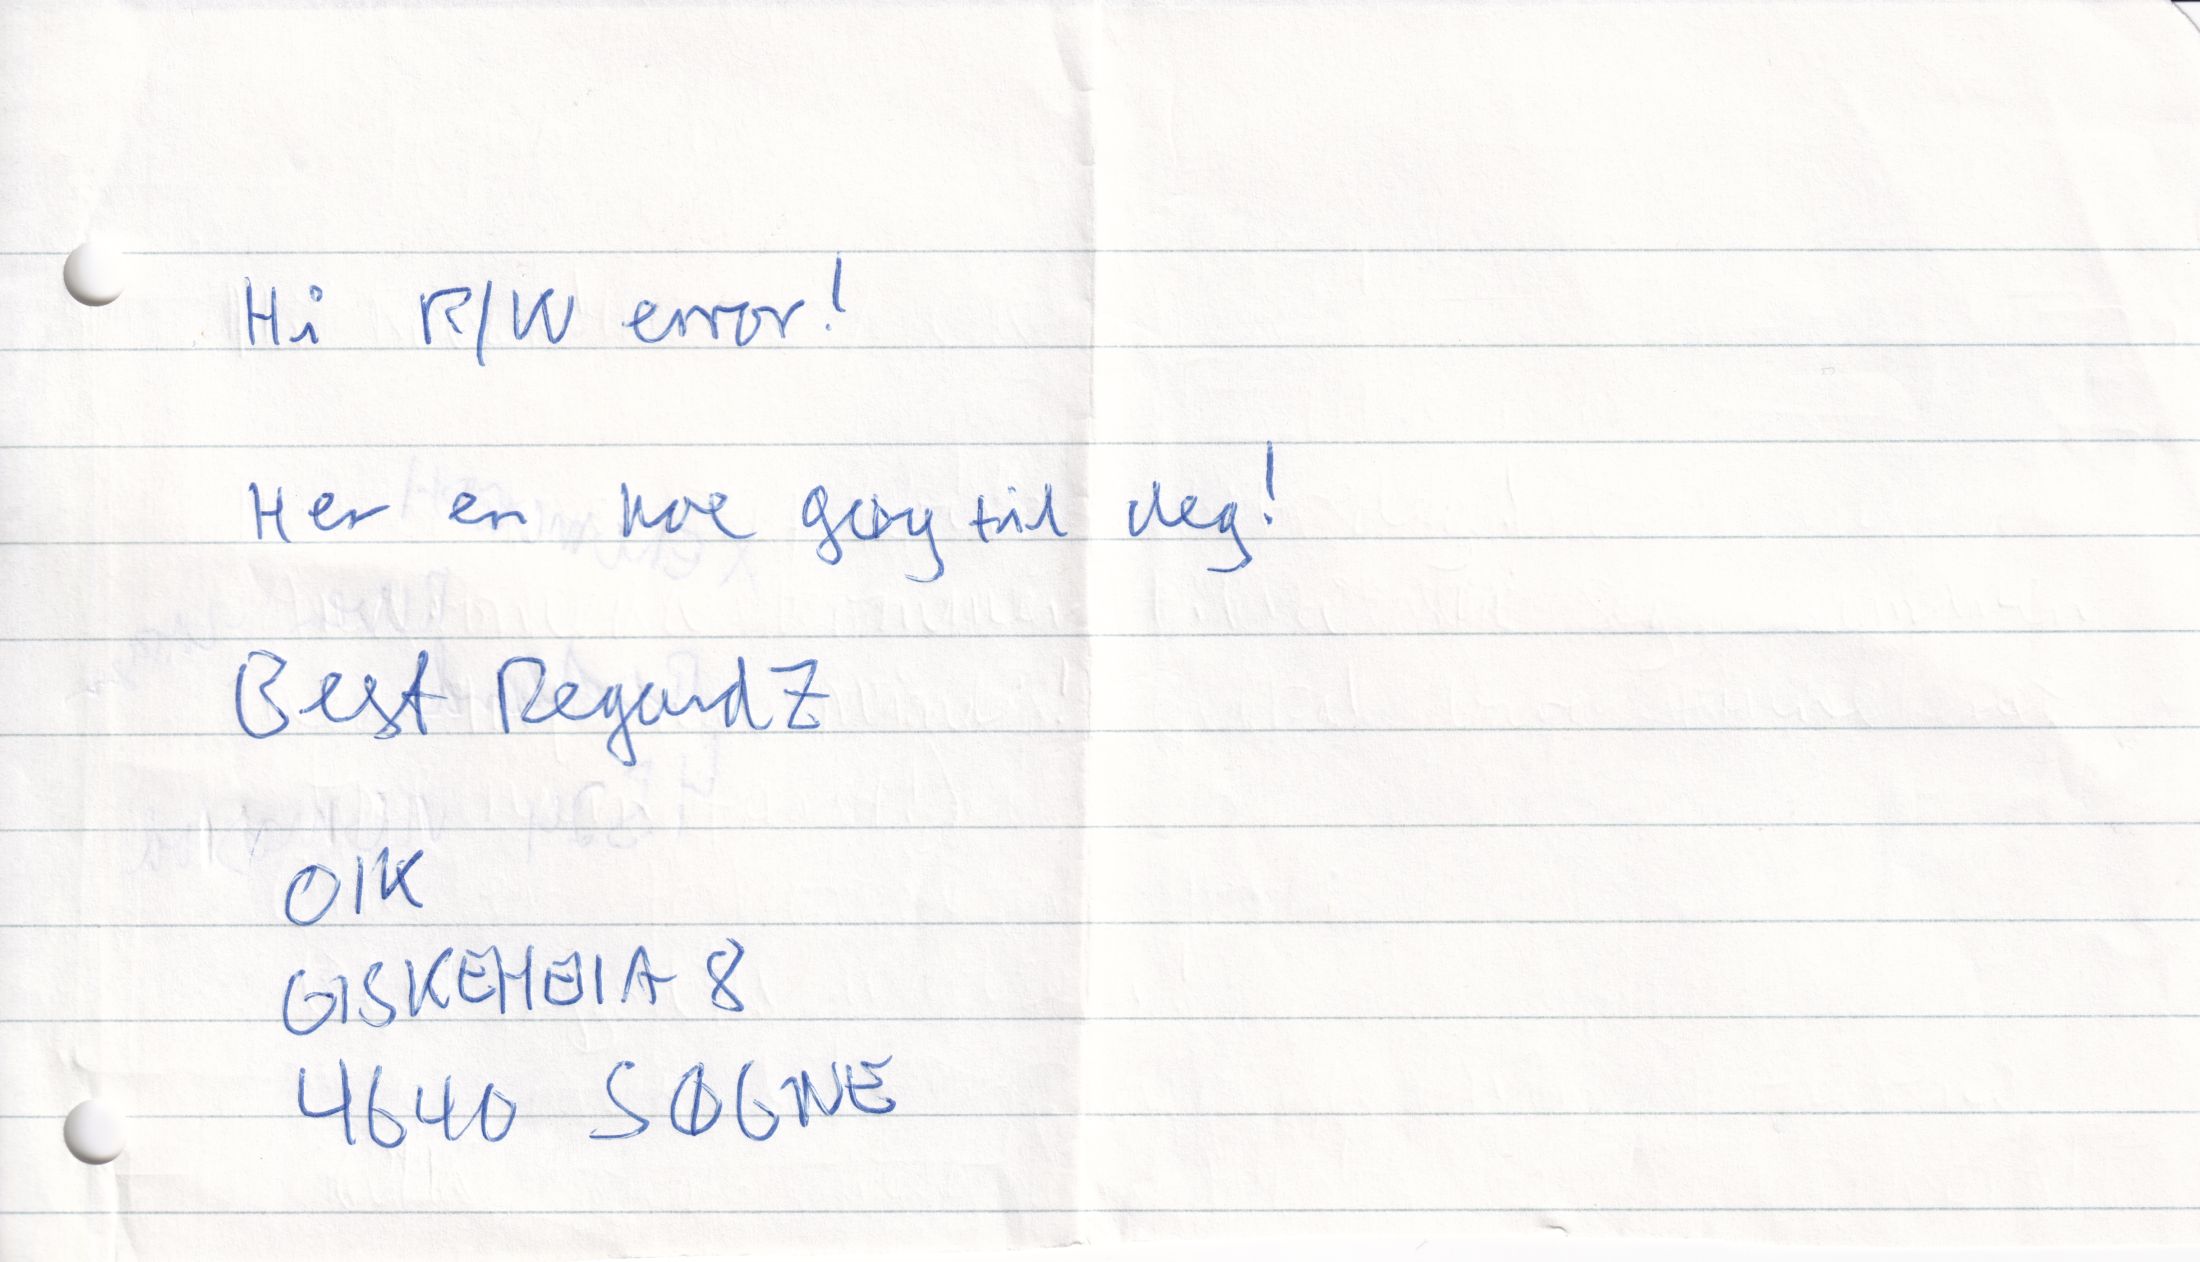 Hi R/W error!
Her er noe gøy til deg!
Best RegardZ
OIK
GISKEHEIA 8
4640 SØGNE